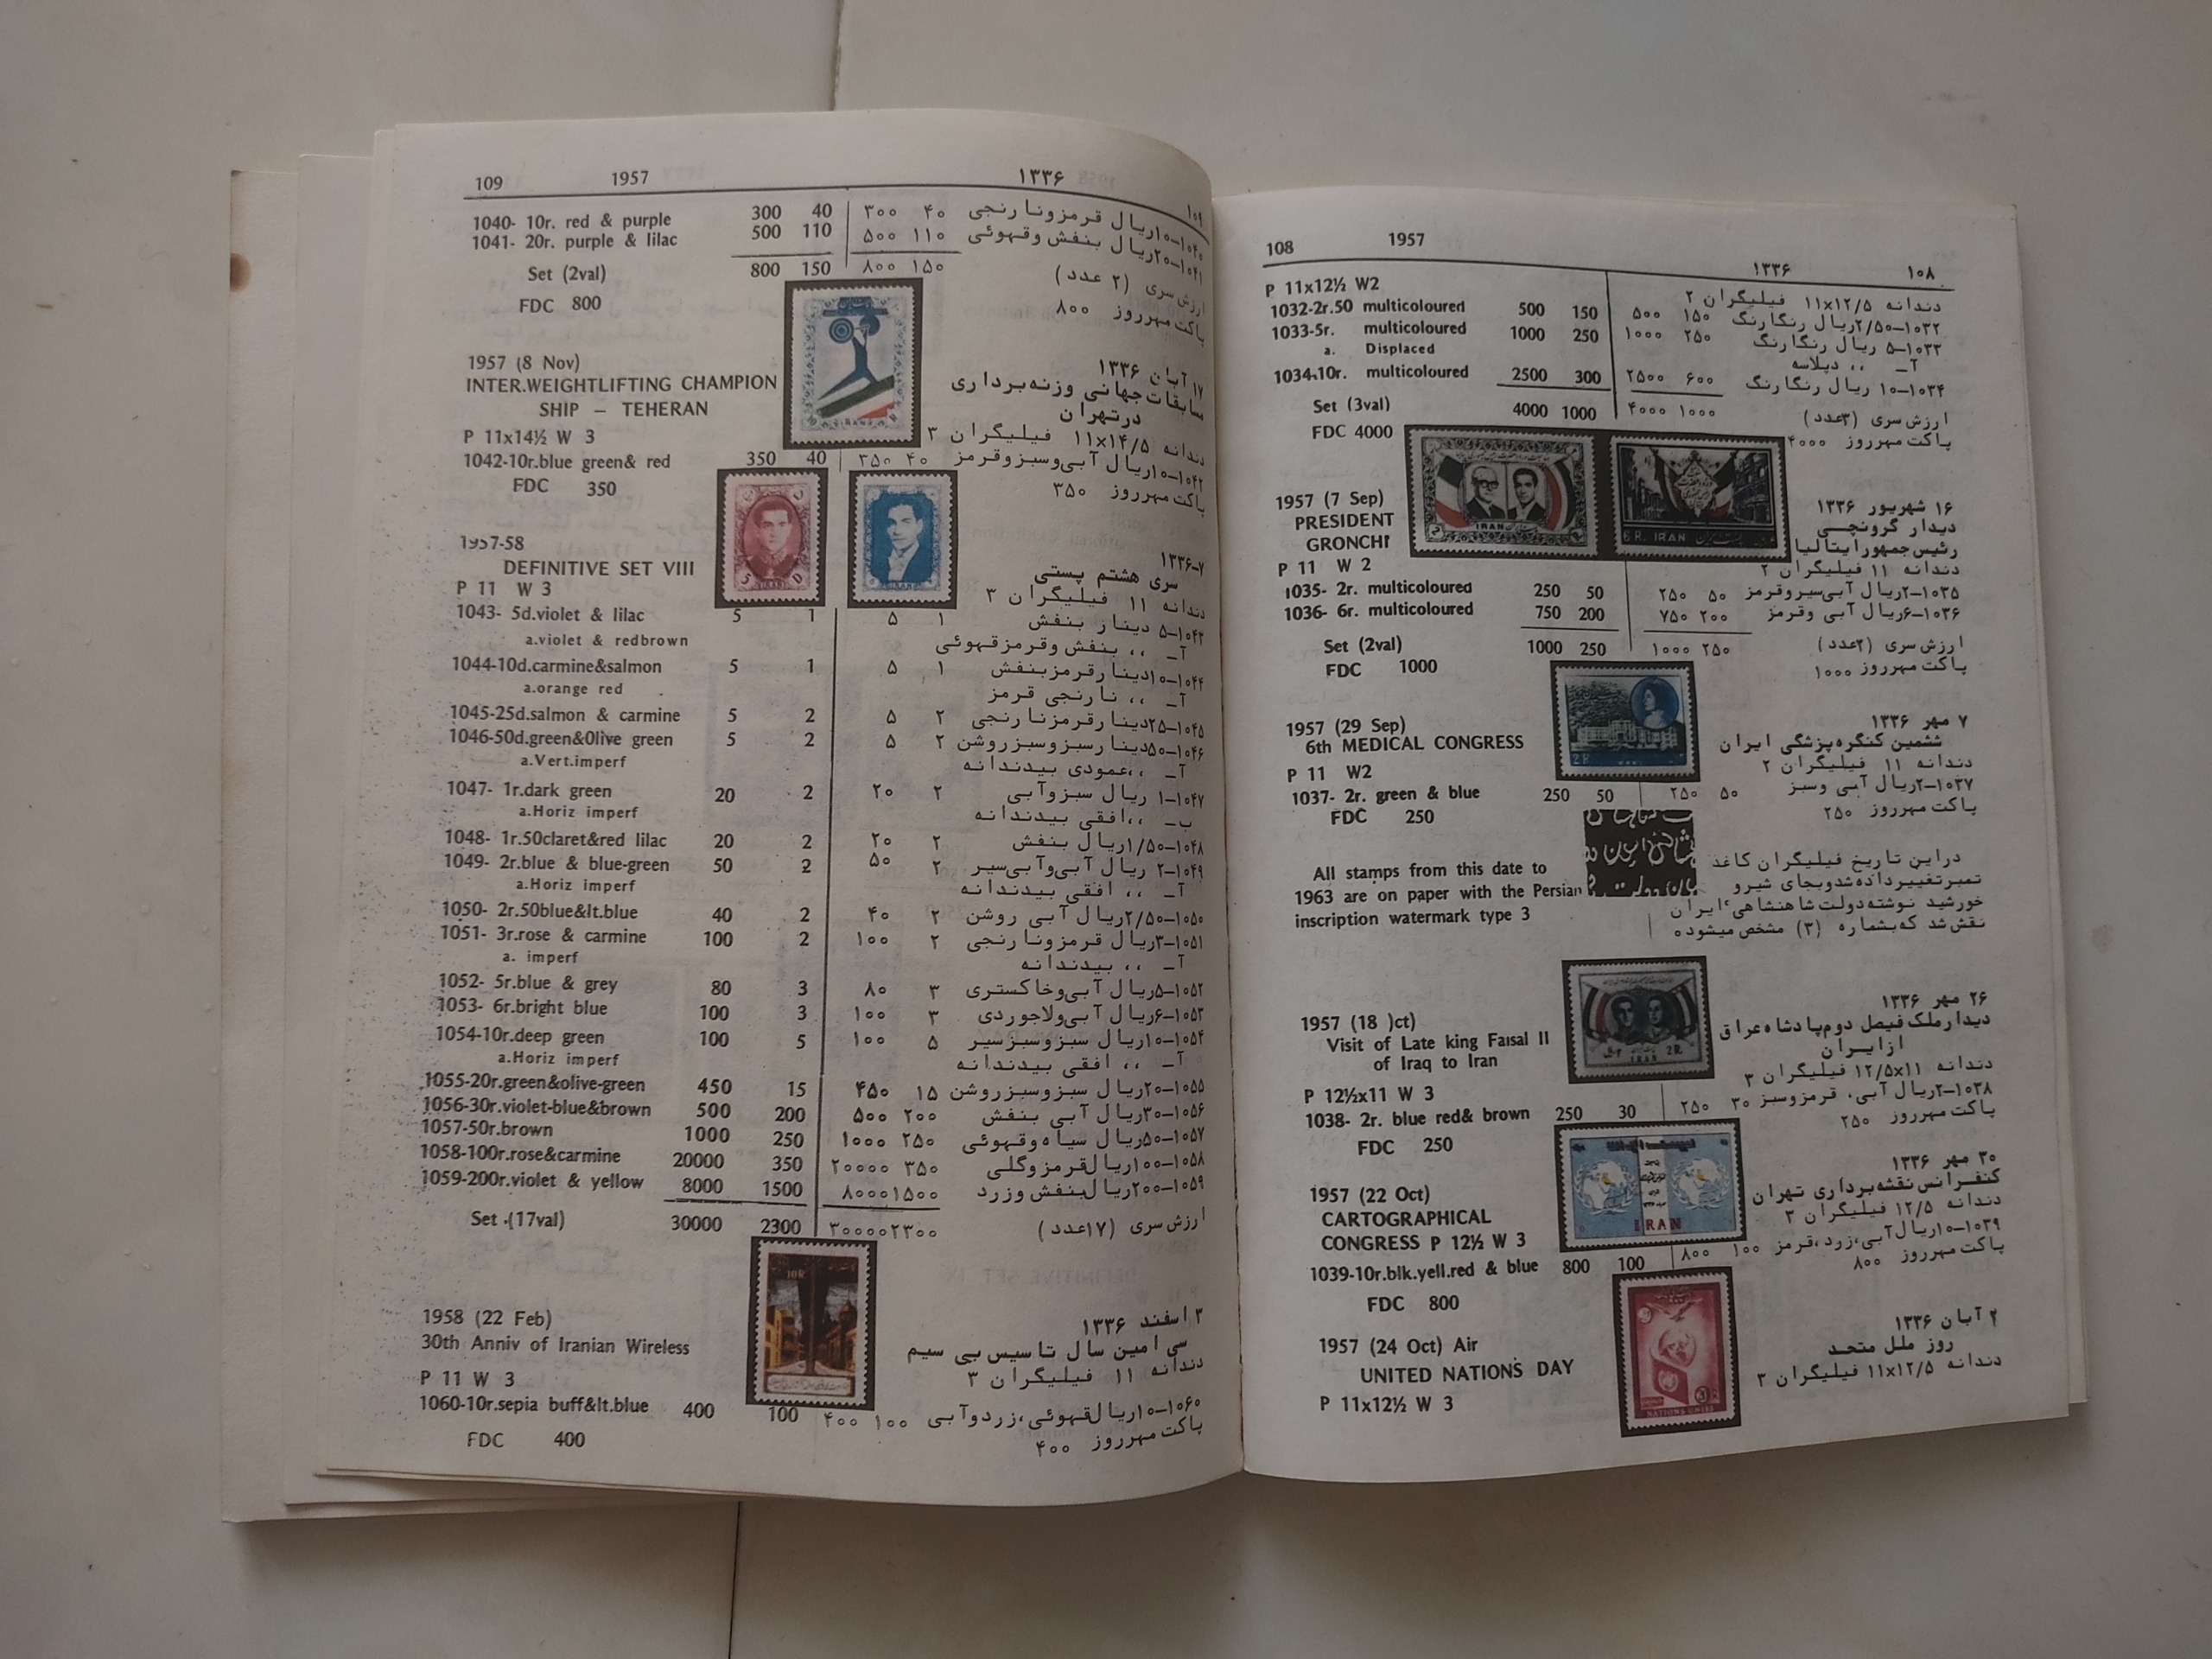 108 1957 ۱۳۳۶ ۱۰۸
P 11x12½ W2 دندانه ۱۱x۱۲/۵ فیلیگران ۲
1032-2r.50 multicoloured 500 150 ۵۰۰ ۱۵۰ ۱۰۳۲–۲/۵۰ریال رنگارنگ
1033-5r. multicoloured 1000 250 ۱۰۰۰ ۲۵۰ ۱۰۳۳–۵ ریال رنگارنگ
a. Displaced آ– ،، دپلاسه
1034-10r. multicoloured 2500 300 ۲۵۰۰ ۶۰۰ ۱۰۳۴–۱۰ ریال رنگارنگ
Set (3val) 4000 1000 ۴۰۰۰ ۱۰۰۰ ارزش سری (۳عدد)
FDC 4000 پاکت مهرروز ۴۰۰۰
IRAN
6R. IRAN
1957 (7 Sep) ۱۶ شهریور ۱۳۳۶
PRESIDENT دیدار گرونچی
GRONCHI رئیس جمهور ایتالیا
P 11 W 2 دندانه ۱۱ فیلیگران ۲
1035- 2r. multicoloured 250 50 ۲۵۰ ۵۰ ۱۰۳۵–۲ریال آبی‌سیروقرمز
1036- 6r. multicoloured 750 200 ۷۵۰ ۲۰۰ ۱۰۳۶–۶ریال آبی وقرمز
Set (2val) 1000 250 ۱۰۰۰ ۲۵۰ ارزش سری (۲عدد)
FDC 1000 پاکت مهرروز ۱۰۰۰
2R
1957 (29 Sep) ۷ مهر ۱۳۳۶
6th MEDICAL CONGRESS ششمین کنگره پزشگی ایران
P 11 W2 دندانه ۱۱ فیلیگران ۲
1037- 2r. green & blue 250 50 ۲۵۰ ۵۰ ۱۰۳۷–۲ریال آبی وسبز
FDC 250 پاکت مهرروز ۲۵۰
All stamps from this date to
1963 are on paper with the Persian
inscription watermark type 3
دراین تاریخ فیلیگران کاغذ
تمبرتغییرداده‌شدوبجای شیرو
خورشید نوشته دولت شاهنشاهی ایران
نقش شد که‌بشماره (۳) مشخص میشود۰
2R
IRAN
1957 (18 )ct) ۲۶ مهر ۱۳۳۶
Visit of Late king Faisal II دیدارملک فیصل دوم‌پادشاه عراق
of Iraq to Iran ازایران
P 12½x11 W 3 دندانه ۱۲/۵x۱۱ فیلیگران ۳
1038- 2r. blue red& brown 250 30 ۲۵۰ ۳۰ ۱۰۳۸–۲ریال آبی، قرمزوسبز
FDC 250 پاکت مهرروز ۲۵۰
IRAN
1957 (22 Oct) ۳۰ مهر ۱۳۳۶
CARTOGRAPHICAL کنفرانس نقشه‌برداری تهران
CONGRESS P 12½ W 3 دندانه ۱۲/۵ فیلیگران ۳
1039-10r.blk.yell.red & blue 800 100 ۸۰۰ ۱۰۰ ۱۰۳۹–۱۰ریال آبی،زرد،قرمز
FDC 800 پاکت مهرروز ۸۰۰
1957 (24 Oct) Air ۲ آبان ۱۳۳۶
UNITED NATIONS DAY روز ملل متحد
P 11x12½ W 3 دندانه ۱۱x۱۲/۵ فیلیگران ۳
NATIONS UNIES
109 1957 ۱۳۳۶ ۱۰۹
1040- 10r. red & purple 300 40 ۳۰۰ ۴۰ ۱۰۴۰–۱۰ریال قرمزونارنجی
1041- 20r. purple & lilac 500 110 ۵۰۰ ۱۱۰ ۱۰۴۱–۲۰ریال بنفش وقهوئی
Set (2val) 800 150 ۸۰۰ ۱۵۰ ارزش سری (۲ عدد)
FDC 800 پاکت مهرروز ۸۰۰
IRAN
1957 (8 Nov) ۱۷ آبان ۱۳۳۶
INTER.WEIGHTLIFTING CHAMPION مسابقات جهانی وزنه‌برداری
SHIP – TEHERAN درتهران
P 11x14½ W 3 دندانه ۱۱x۱۴/۵ فیلیگران ۳
1042-10r.blue green& red 350 40 ۳۵۰ ۴۰ ۱۰۴۲–۱۰ریال آبی‌وسبزوقرمز
FDC 350 پاکت مهرروز ۳۵۰
5 IRAN D
IRAN
1957-58 ۱۳۳۶-۷
DEFINITIVE SET VIII سری هشتم پستی
P 11 W 3 دندانه ۱۱ فیلیگران ۳
1043- 5d.violet & lilac 5 1 ۵ ۱ ۱۰۴۳–۵ دینار بنفش
a.violet & redbrown آ– ،، بنفش وقرمزقهوئی
1044-10d.carmine&salmon 5 1 ۵ ۱ ۱۰۴۴–۱۰دینارقرمزبنفش
a.orange red آ– ،، نارنجی قرمز
1045-25d.salmon & carmine 5 2 ۵ ۲ ۱۰۴۵–۲۵دینارقرمزنارنجی
1046-50d.green&Olive green 5 2 ۵ ۲ ۱۰۴۶–۵۰دینارسبزوسبزروشن
a.Vert.imperf آ– ،،عمودی بیدندانه
1047- 1r.dark green 20 2 ۲۰ ۲ ۱۰۴۷–۱ ریال سبزوآبی
a.Horiz imperf ب– ،،افقی بیدندانه
1048- 1r.50claret&red lilac 20 2 ۲۰ ۲ ۱۰۴۸–۱/۵۰ریال بنفش
1049- 2r.blue & blue-green 50 2 ۵۰ ۲ ۱۰۴۹–۲ ریال آبی‌وآبی‌سیر
a.Horiz imperf آ– ،، افقی بیدندانه
1050- 2r.50blue&lt.blue 40 2 ۴۰ ۲ ۱۰۵۰–۲/۵۰ریال آبی روشن
1051- 3r.rose & carmine 100 2 ۱۰۰ ۲ ۱۰۵۱–۳ریال قرمزونارنجی
a. imperf آ– ،، بیدندانه
1052- 5r.blue & grey 80 3 ۸۰ ۳ ۱۰۵۲–۵ریال آبی‌وخاکستری
1053- 6r.bright blue 100 3 ۱۰۰ ۳ ۱۰۵۳–۶ریال آبی‌ولاجوردی
1054-10r.deep green 100 5 ۱۰۰ ۵ ۱۰۵۴–۱۰ریال سبزوسبزسیر
a.Horiz imperf آ– ،، افقی بیدندانه
1055-20r.green&olive-green 450 15 ۴۵۰ ۱۵ ۱۰۵۵–۲۰ریال سبزوسبزروشن
1056-30r.violet-blue&brown 500 200 ۵۰۰ ۲۰۰ ۱۰۵۶–۳۰ریال آبی بنفش
1057-50r.brown 1000 250 ۱۰۰۰ ۲۵۰ ۱۰۵۷–۵۰ریال سیاه وقهوئی
1058-100r.rose&carmine 20000 350 ۲۰۰۰۰ ۳۵۰ ۱۰۵۸–۱۰۰ریال‌قرمزوگلی
1059-200r.violet & yellow 8000 1500 ۸۰۰۰۱۵۰۰ ۱۰۵۹–۲۰۰ریال‌بنفش وزرد
Set -(17val) 30000 2300 ۳۰۰۰۰۲۳۰۰ ارزش سری (۱۷عدد)
10R
1958 (22 Feb) ۳ اسفند ۱۳۳۶
30th Anniv of Iranian Wireless سی امین سال تاسیس بی سیم
P 11 W 3 دندانه ۱۱ فیلیگران ۳
1060-10r.sepia buff&lt.blue 400 100 ۴۰۰ ۱۰۰ ۱۰۶۰–۱۰ریال‌قهوئی،زردوآبی
FDC 400 پاکت مهرروز ۴۰۰